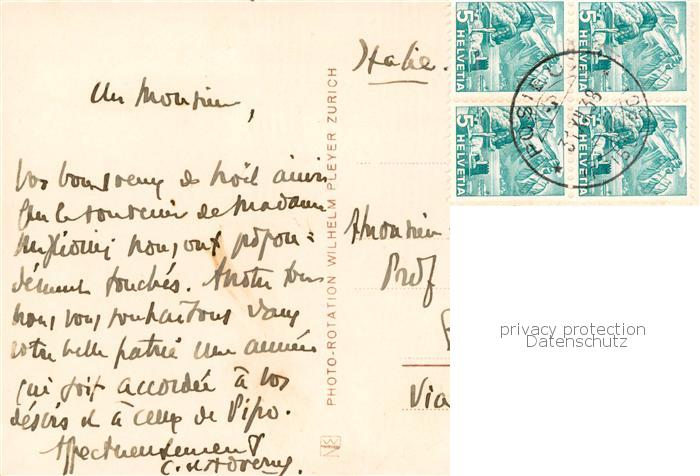 Cher Monsieur,
Vos bons vœux de Noël ainsi
que le souvenir de Madame
nous ont profon=
dément touchés. A notre tour
nous vous souhaitons dans
votre belle patrie une année
qui soit accordée à vos
désirs et à ceux de Pipo.
Affectueusement
PHOTO-ROTATION WILHELM PLEYER ZURICH
Italie.
Monsieur
Prof
Via
5 HELVETIA
5 HELVETIA
5 HELVETIA
5 HELVETIA
privacy protection
Datenschutz